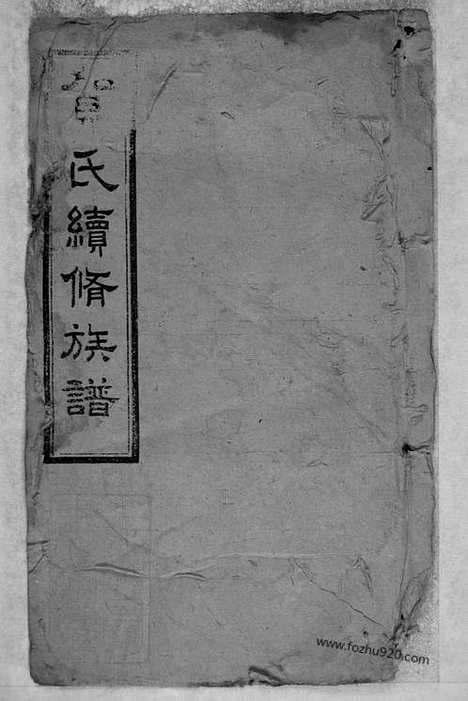 氏續脩族譜
www.fozhu920.com